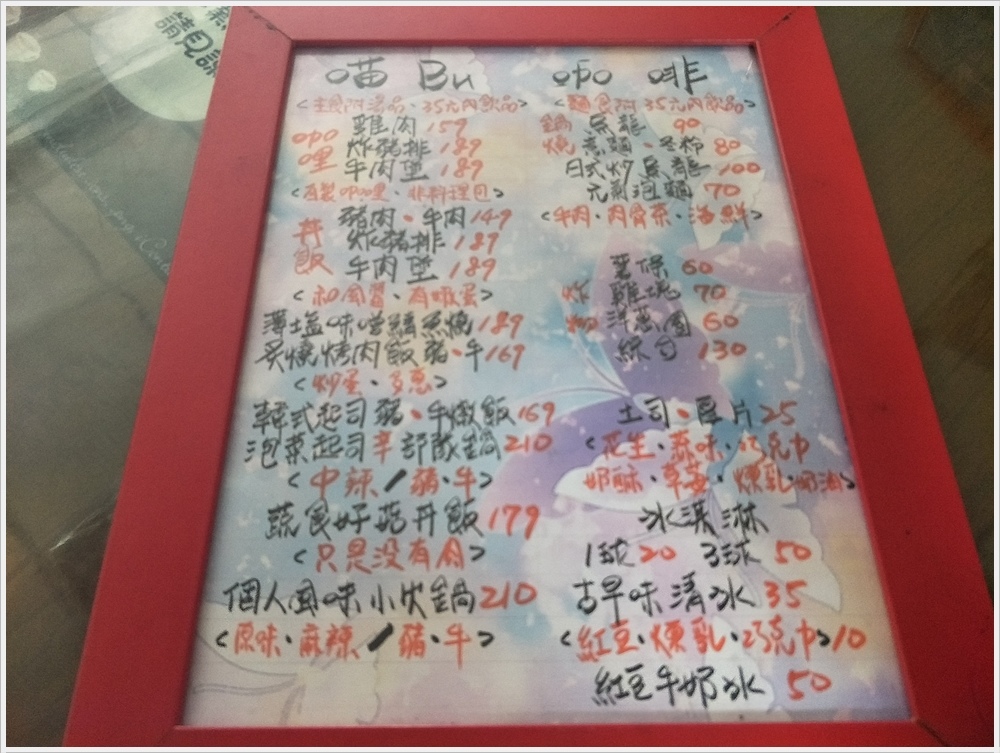 請見諒
喵 Bu 咖啡
<主食附湯品·35元內飲品>
咖哩 雞肉 159
炸豬排 189
牛肉堡 189
<自製咖哩·非料理包>
丼飯 豬肉·牛肉 149
炸豬排 189
牛肉堡 189
<和風醬·有嫩蛋>
薄塩味噌鯖魚燒 189
炙燒烤肉飯 豬·牛 169
<炒蛋·多蔥>
韓式起司豬·牛燉飯 169
泡菜起司辛部隊鍋 210
<中辣/豬·牛>
蔬食好菇丼飯 179
<只是没有肉>
個人風味小火鍋 210
<原味·麻辣/豬·牛>
<麵食附35元內飲品>
鍋燒 烏龍 90
意麵·冬粉 80
日式炒烏龍 100
元氣泡麵 70
<牛肉·肉骨茶·海鮮>
炸物 薯條 60
雞塊 70
洋蔥圈 60
綜合 130
土司·厚片 25
<花生·蒜味·巧克力
奶酥·草莓·煉乳·奶油>
冰淇淋
1球 20 3球 50
古早味清冰 35
<紅豆·煉乳·巧克力> 10
紅豆牛奶冰 50